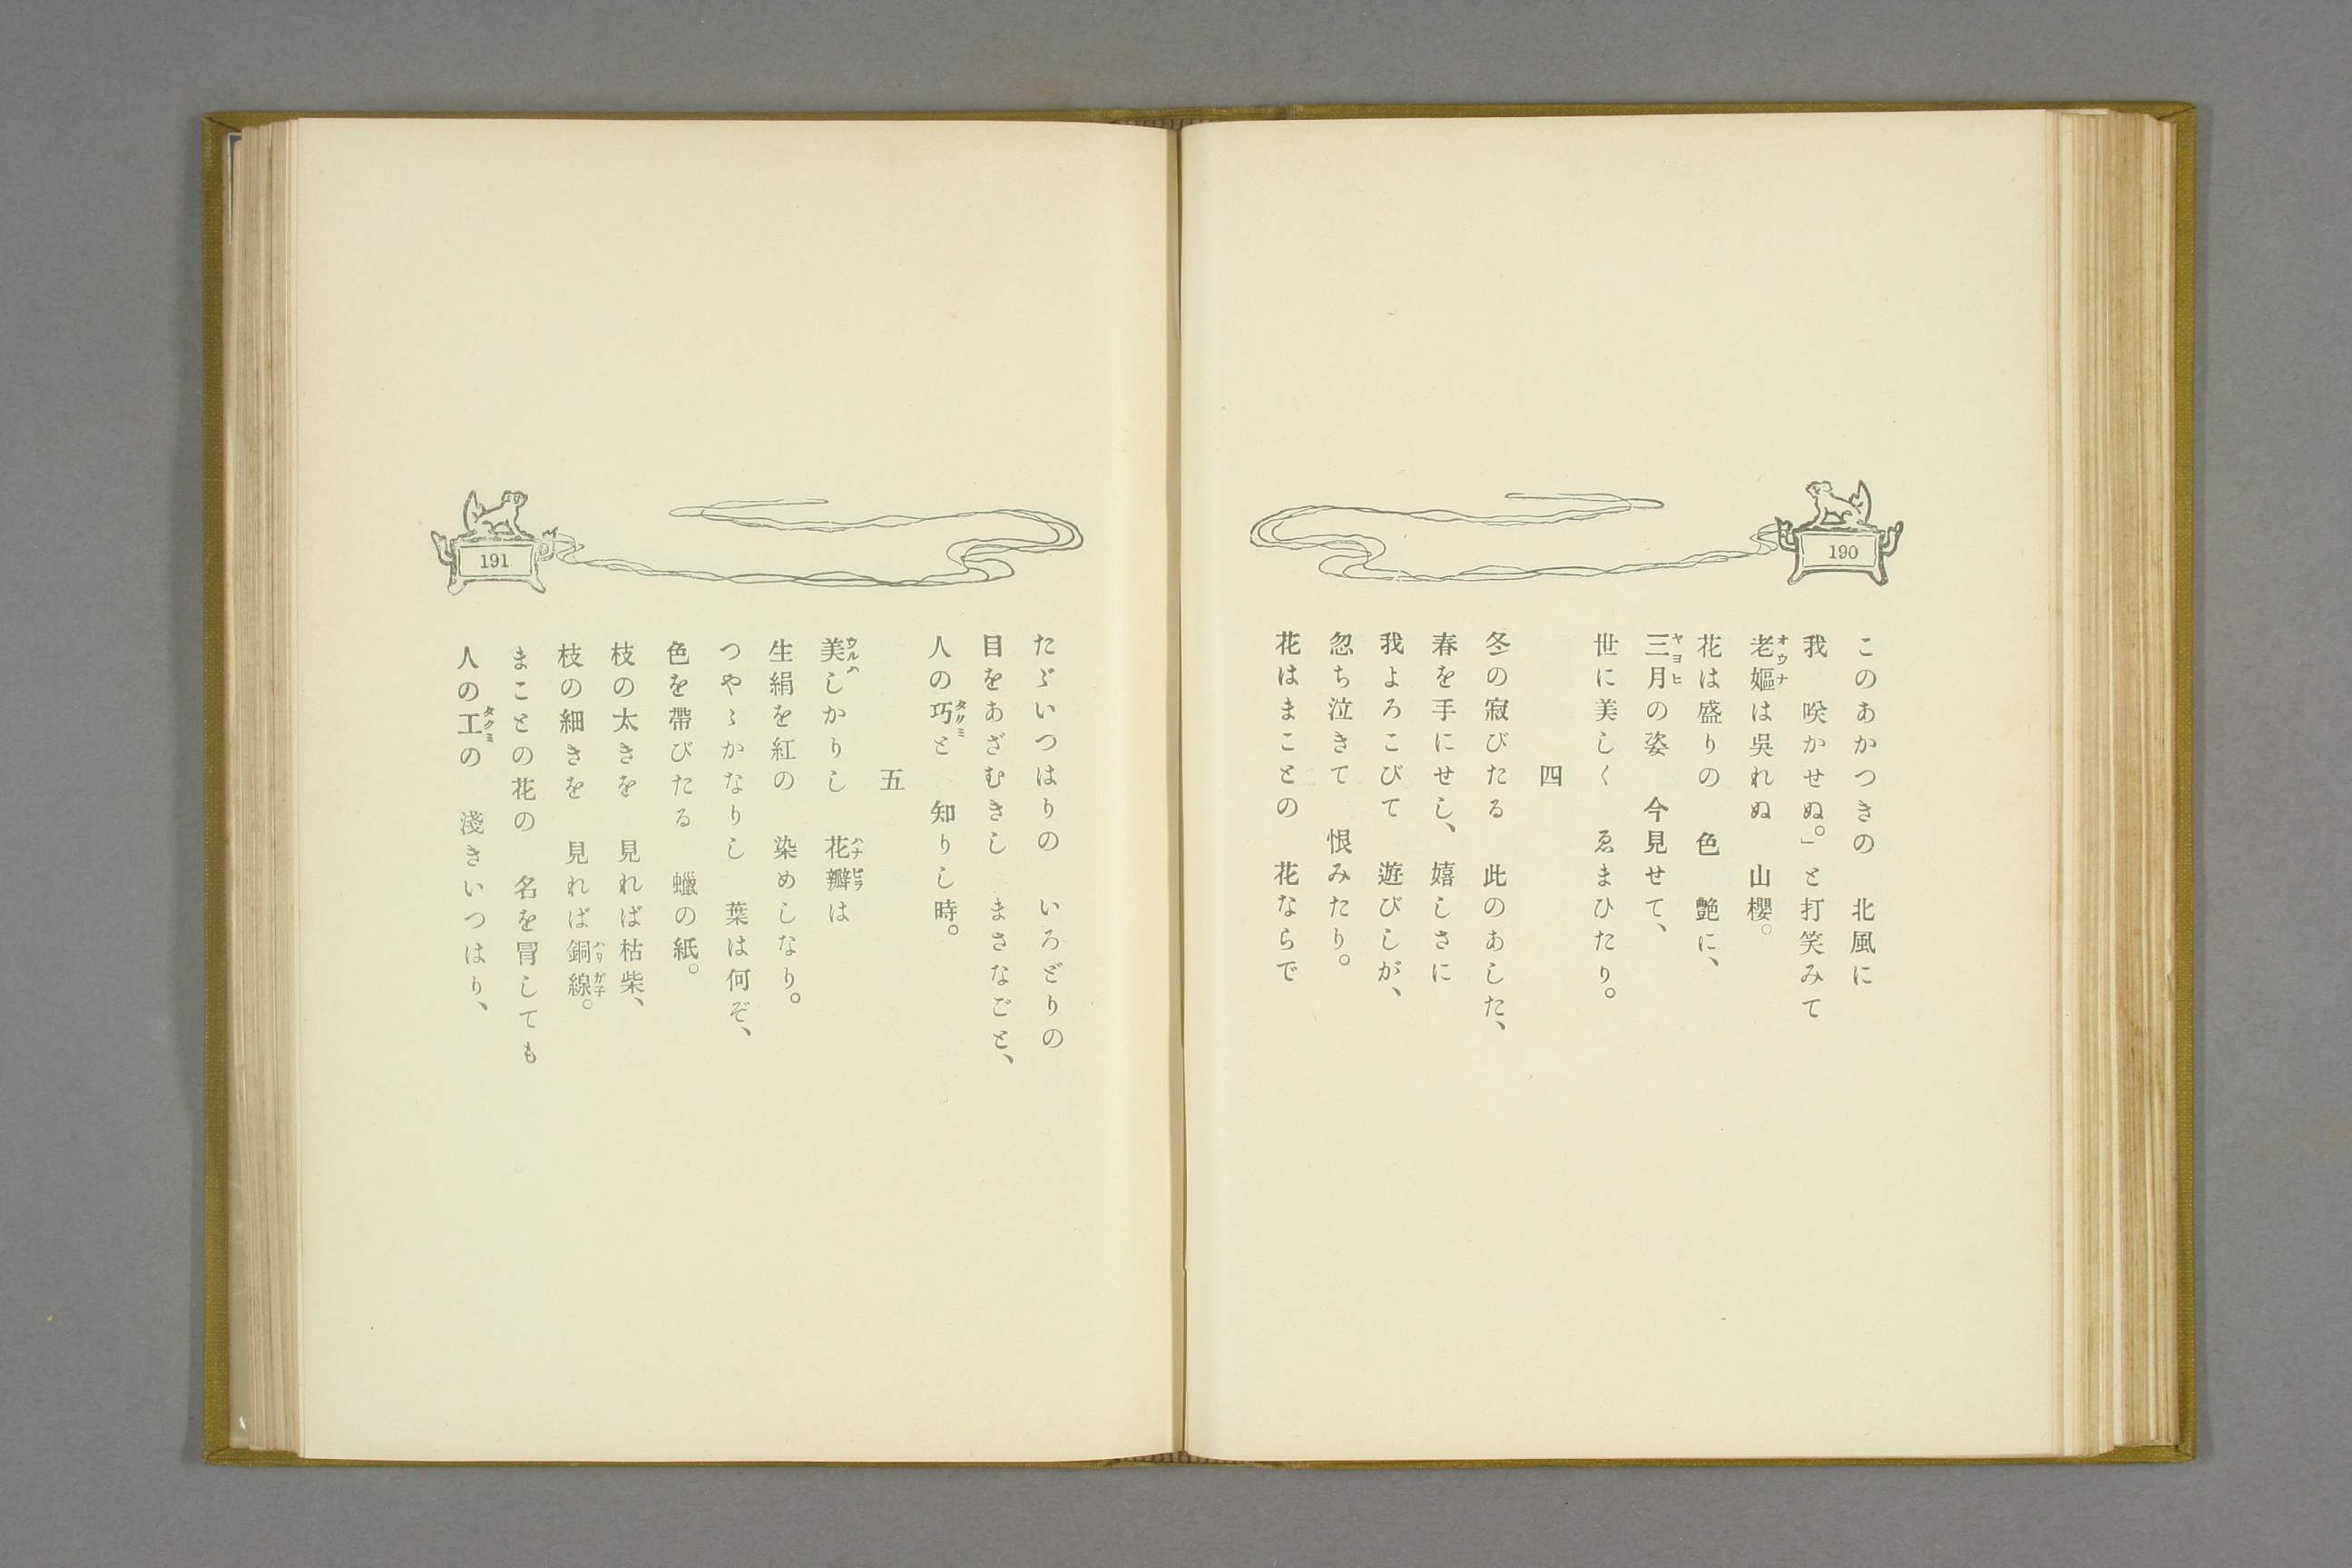 190
このあかつきの　北風に
我　咲かせぬ。」と打笑みて
老嫗は呉れぬ　山櫻。
花は盛りの　色　艶に、
三月の姿　今見せて、
世に美しく　ゑまひたり。
四
冬の寂びたる　此のあした、
春を手にせし、嬉しさに
我よろこびて　遊びしが、
忽ち泣きて　恨みたり。
花はまことの　花ならで
191
たゞいつはりの　いろどりの
目をあざむきし　まさなごと、
人の巧と　知りし時。
五
美しかりし　花瓣は
生絹を紅の　染めしなり。
つやゝかなりし　葉は何ぞ、
色を帶びたる　蠟の紙。
枝の太きを　見れば枯柴、
枝の細きを　見れば銅線。
まことの花の　名を冐しても
人の工の　淺きいつはり、